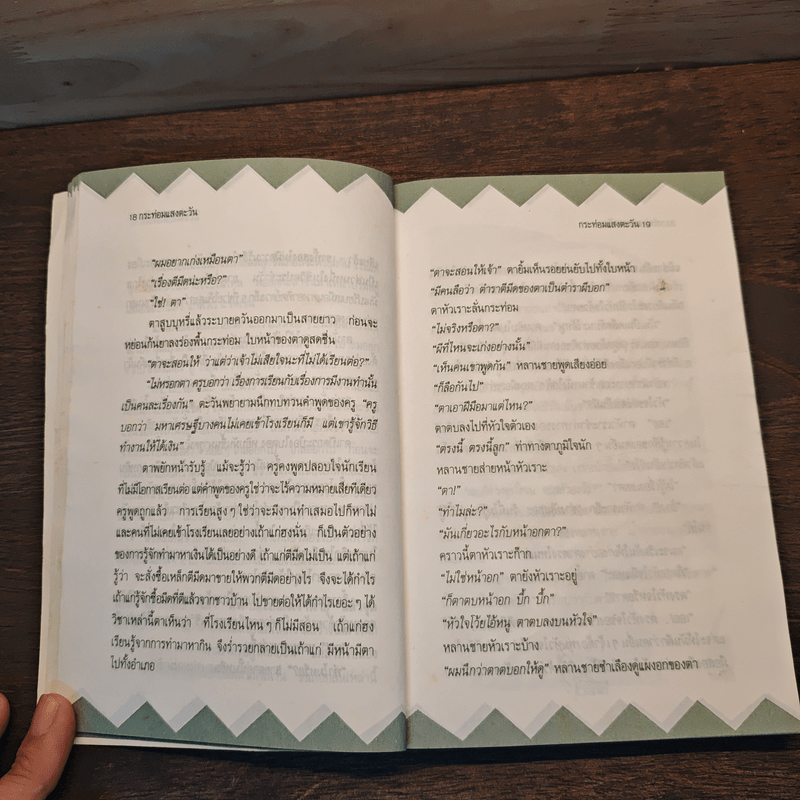 18 กระท่อมแสงตะวัน
"ผมอยากเก่งเหมือนตา"
"เรื่องตีมีดน่ะหรือ?"
"ใช่! ตา"
ตาสูบบุหรี่แล้วระบายควันออกมาเป็นสายยาว ก่อนจะ
หย่อนก้นยาลงร่องพื้นกระท่อม ใบหน้าของตาดูสดชื่น
"ตาจะสอนให้ ว่าแต่ว่าเจ้าไม่เสียใจนะที่ไม่ได้เรียนต่อ?"
"ไม่หรอกตา ครูบอกว่า เรื่องการเรียนกับเรื่องการมีงานทำนั้น
เป็นคนละเรื่องกัน" ตะวันพยายามนึกทบทวนคำพูดของครู "ครู
บอกว่า มหาเศรษฐีบางคนไม่เคยเข้าโรงเรียนก็มี แต่เขารู้จักวิธี
ทำงานให้ได้เงิน"
ตาพยักหน้ารับรู้ แม้จะรู้ว่า ครูคงพูดปลอบใจนักเรียน
ที่ไม่มีโอกาสเรียนต่อ แต่คำพูดของครูใช่ว่าจะไร้ความหมายเสียทีเดียว
ครูพูดถูกแล้ว การเรียนสูง ๆ ใช่ว่าจะมีงานทำเสมอไปก็หาไม่
และคนที่ไม่เคยเข้าโรงเรียนเลยอย่างเถ้าแก่ฮงนั่น ก็เป็นตัวอย่าง
ของการรู้จักทำมาหาเงินได้เป็นอย่างดี เถ้าแก่ตีมีดไม่เป็น แต่เถ้าแก่
รู้ว่า จะสั่งซื้อเหล็กตีมีดมาขายให้พวกตีมีดอย่างไร จึงจะได้กำไร
เถ้าแก่รู้จักซื้อมีดที่ตีแล้วจากชาวบ้าน ไปขายต่อให้ได้กำไรเยอะ ๆ ได้
วิชาเหล่านี้ตาเห็นว่า ที่โรงเรียนไหน ๆ ก็ไม่มีสอน เถ้าแก่ฮง
เรียนรู้จากการทำมาหากิน จึงร่ำรวยกลายเป็นเถ้าแก่ มีหน้ามีตา
ไปทั้งอำเภอ
กระท่อมแสงตะวัน 19
"ตาจะสอนให้เจ้า" ตายิ้มเห็นรอยย่นยับไปทั้งใบหน้า
"มีคนลือว่า ตำราตีมีดของตาเป็นตำราผีบอก"
ตาหัวเราะลั่นกระท่อม
"ไม่จริงหรือตา?"
"ผีที่ไหนจะเก่งอย่างนั้น"
"เห็นคนเขาพูดกัน" หลานชายพูดเสียงอ่อย
"ก็ลือกันไป"
"ตาเอาฝีมือมาแต่ไหน?"
ตาตบลงไปที่หัวใจตัวเอง
"ตรงนี้ ตรงนี้ลูก" ท่าทางตาภูมิใจนัก
หลานชายส่ายหน้าหัวเราะ
"ตา!"
"ทำไมล่ะ?"
"มันเกี่ยวอะไรกับหน้าอกตา?"
คราวนี้ตาหัวเราะก๊าก
"ไม่ใช่หน้าอก" ตายังหัวเราะอยู่
"ก็ตาตบหน้าอก ปั๊ก ปั๊ก"
"หัวใจโว้ยไอ้หนู ตาตบลงบนหัวใจ"
หลานชายหัวเราะบ้าง
"ผมนึกว่าตาตบอกให้ดู" หลานชายชำเลืองดูแผงอกของตา